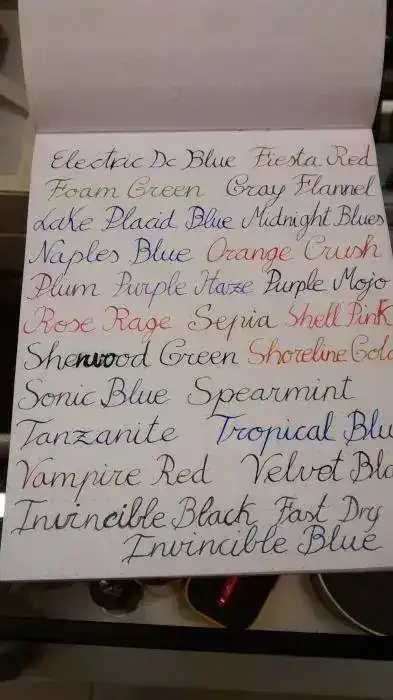 Electric Dc Blue Fiesta Red
Foam Green Gray Flannel
Lake Placid Blue Midnight Blues
Naples Blue Orange Crush
Plum Purple Haze Purple Mojo
Rose Rage Sepia Shell Pink
Sherwood Green Shoreline Gold
Sonic Blue Spearmint
Tanzanite Tropical Blu
Vampire Red Velvet Bla
Invincible Black Fast Dry
Invincible Blue